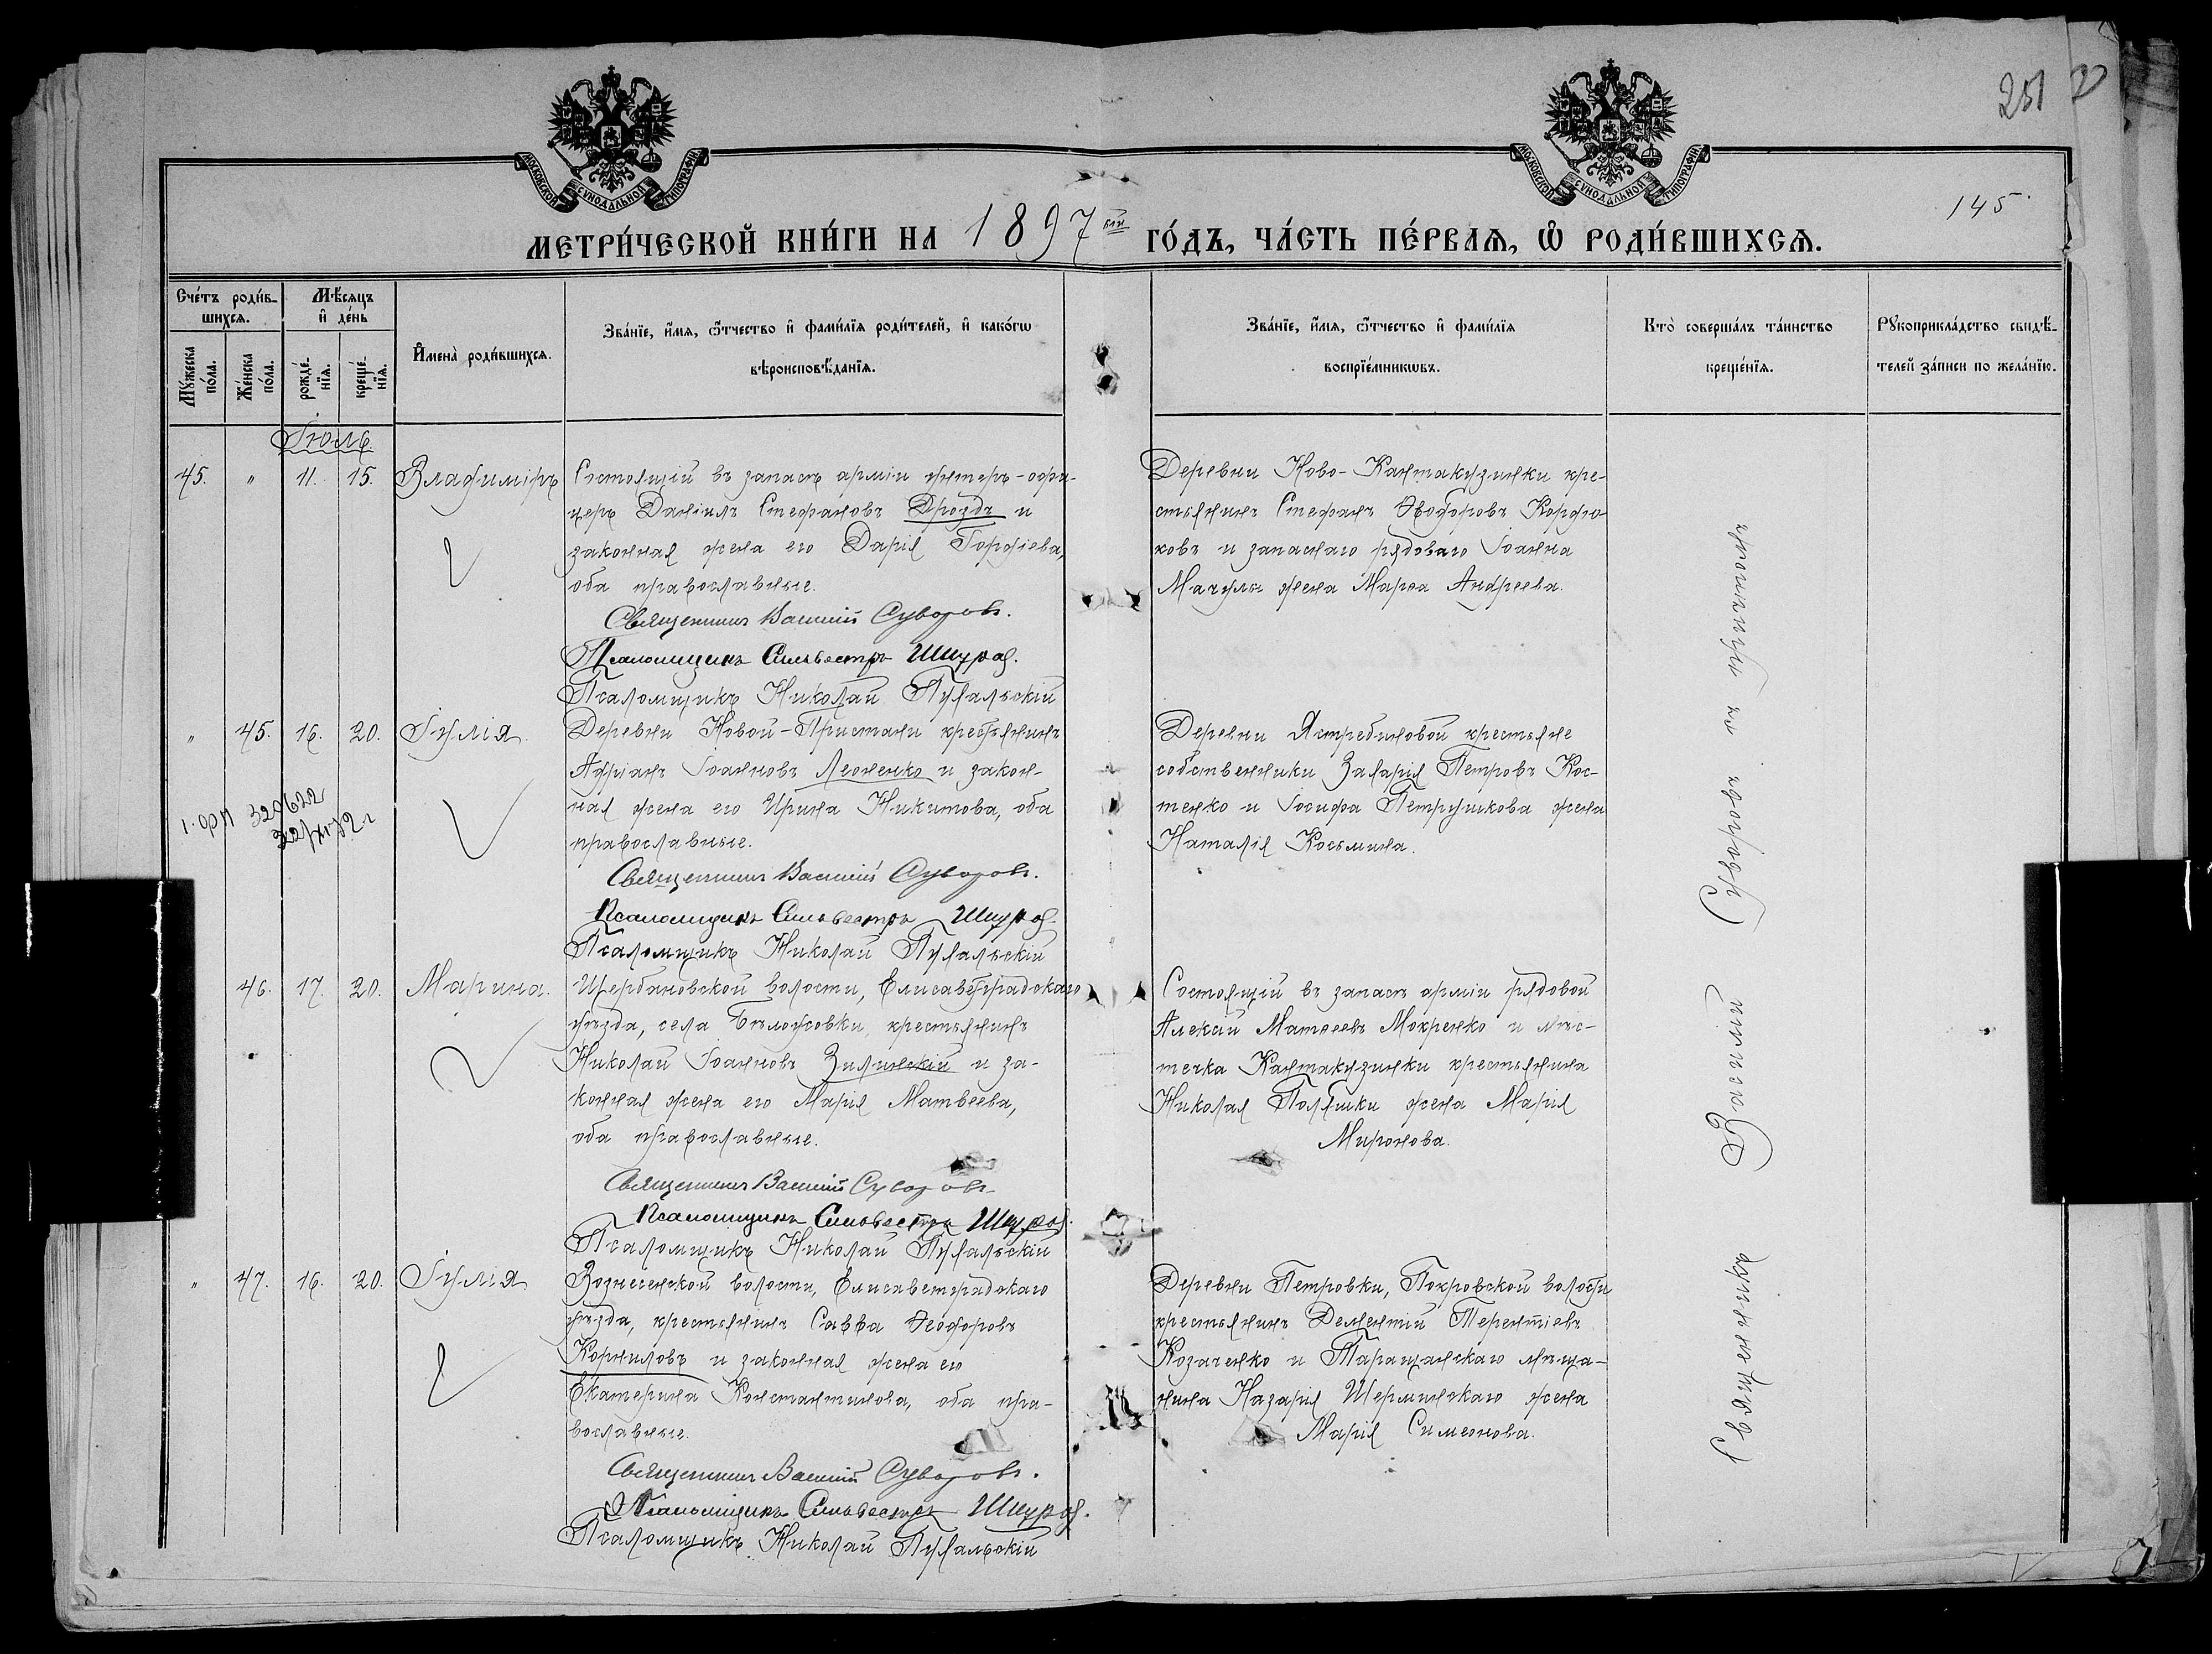 251
145
МОСКОВСКОЙ СѴНОДАЛЬНОЙ ТИПОГРАФІИ
МОСКОВСКОЙ СѴНОДАЛЬНОЙ ТИПОГРАФІИ
МЕТРИ́ЧЕСКОЙ КНИ́ГИ НА 1897ый ГО́ДЪ, ЧА́СТЬ ПЕ́РВАѦ, Ѡ҆ РОДИ́ВШИХСѦ.
Сче́тъ роди́в-
шихсѧ.
Мѣ́сѧцъ
и҆ де́нь
Мꙋ́жеска
по́ла.
Же́нска
по́ла.
рожде́-
нїѧ.
креще́-
нїѧ.
И҆мена̀ роди́вшихсѧ.
Зва́нїе, и҆́мѧ, ѻ҆́тчество и҆ фами́лїѧ роди́телей, и҆ како́гѡ
вѣроисповѣ́данїѧ.
Зва́нїе, и҆́мѧ, ѻ҆́тчество и҆ фами́лїѧ
воспрїе́мникѡвъ.
Кто̀ соверша́лъ та́инство
креще́нїѧ.
Рꙋкоприкла́дство свидѣ́-
телей за́писи по жела́нїю.
Іюль
45. " 11. 15. Владиміръ
Состоящій въ запасѣ арміи унтеръ-офи-
церъ Даніилъ Стефановъ Дроздъ и
законная жена его Дарія Гордіева,
оба православные.
Священникъ Василій Суворовъ.
Псаломщикъ Сильвестръ
Псаломщикъ Николай
Деревни Ново-Кантакузинки кре-
стьянинъ Стефанъ Ѳеодоровъ Кордю-
ковъ и запаснаго рядоваго Іоанна
Мачулы жена Марѳа Андреева.
" 45. 16. 20. Іулія
Деревни Новой-Пристани крестьянинъ
Адріанъ Іоанновъ Леоненко и закон-
ная жена его Ирина Никитова, оба
православные.
Священникъ Василій Суворовъ.
Псаломщикъ Сильвестръ
Псаломщикъ Николай
Деревни Ястребиновой крестьяне
собственники Захарія Петровъ Кос-
тенко и Іосифа Петрушкова жена
Наталія Косьмина.
46. 17. 20. Марина.
Щербановской волости, Елисаветградскаго
уѣзда, села Бѣлоусовки, крестьянинъ
Николай Іоанновъ Зилинскій и за-
конная жена его Марія Матвеева,
оба православные.
Священникъ Василій Суворовъ
Псаломщикъ Сильвестръ
Псаломщикъ Николай
Состоящій въ запасѣ арміи рядовой
Алексій Матѳеевъ Мокренко и мѣс-
течка Кантакузинки крестьянина
Николая жена Марія
Миронова.
" 47. 16. 20. Іулія
Вознесенской волости, Елисаветградскаго
уѣзда, крестьянинъ Савва Ѳеодоровъ
Корниловъ и законная жена его
Екатерина Константинова, оба пра-
вославные.
Священникъ Василій Суворовъ.
Псаломщикъ Сильвестръ
Псаломщикъ Николай
Деревни Петровки, Покровской волости
крестьянинъ Дементій Терентіевъ
Козаченко и Таращанскаго мѣща-
нина Назарія жена
Марія Симеонова.
Священникъ Василій Суворовъ съ псаломщикомъ